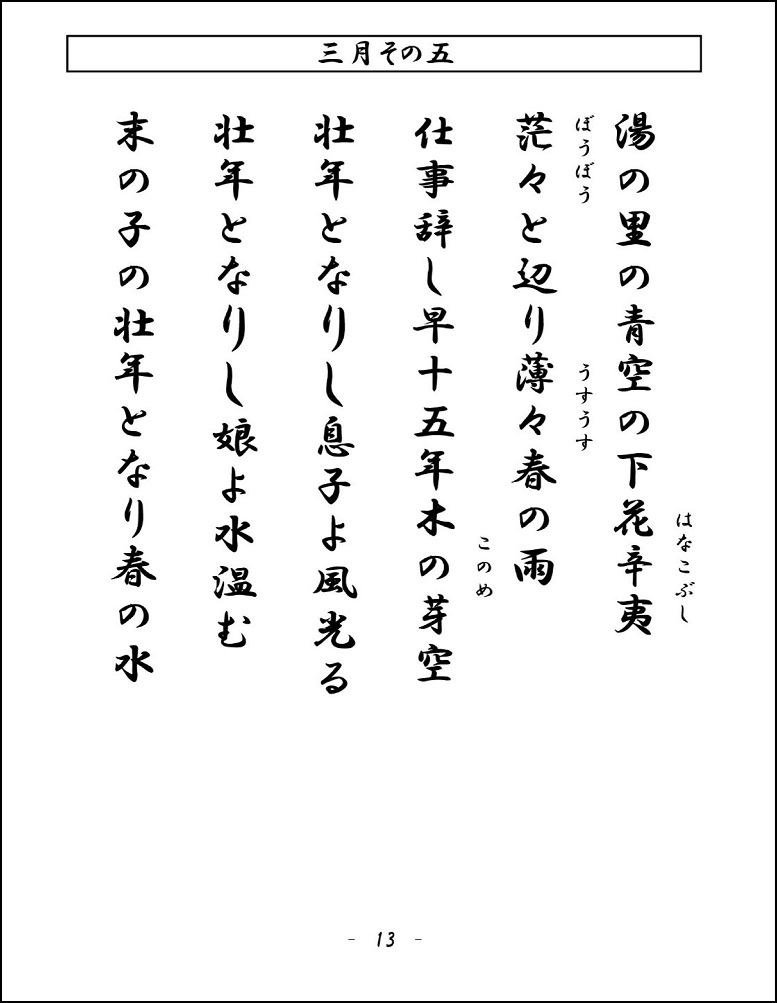 三月その五
はなこぶし
湯の里の青空の下花辛夷
ぼうぼう うすうす
茫々と辺り薄々春の雨
このめ
仕事辞し早十五年木の芽空
壮年となりし息子よ風光る
壮年となりし娘よ水温む
末の子の壮年となり春の水
- 13 -